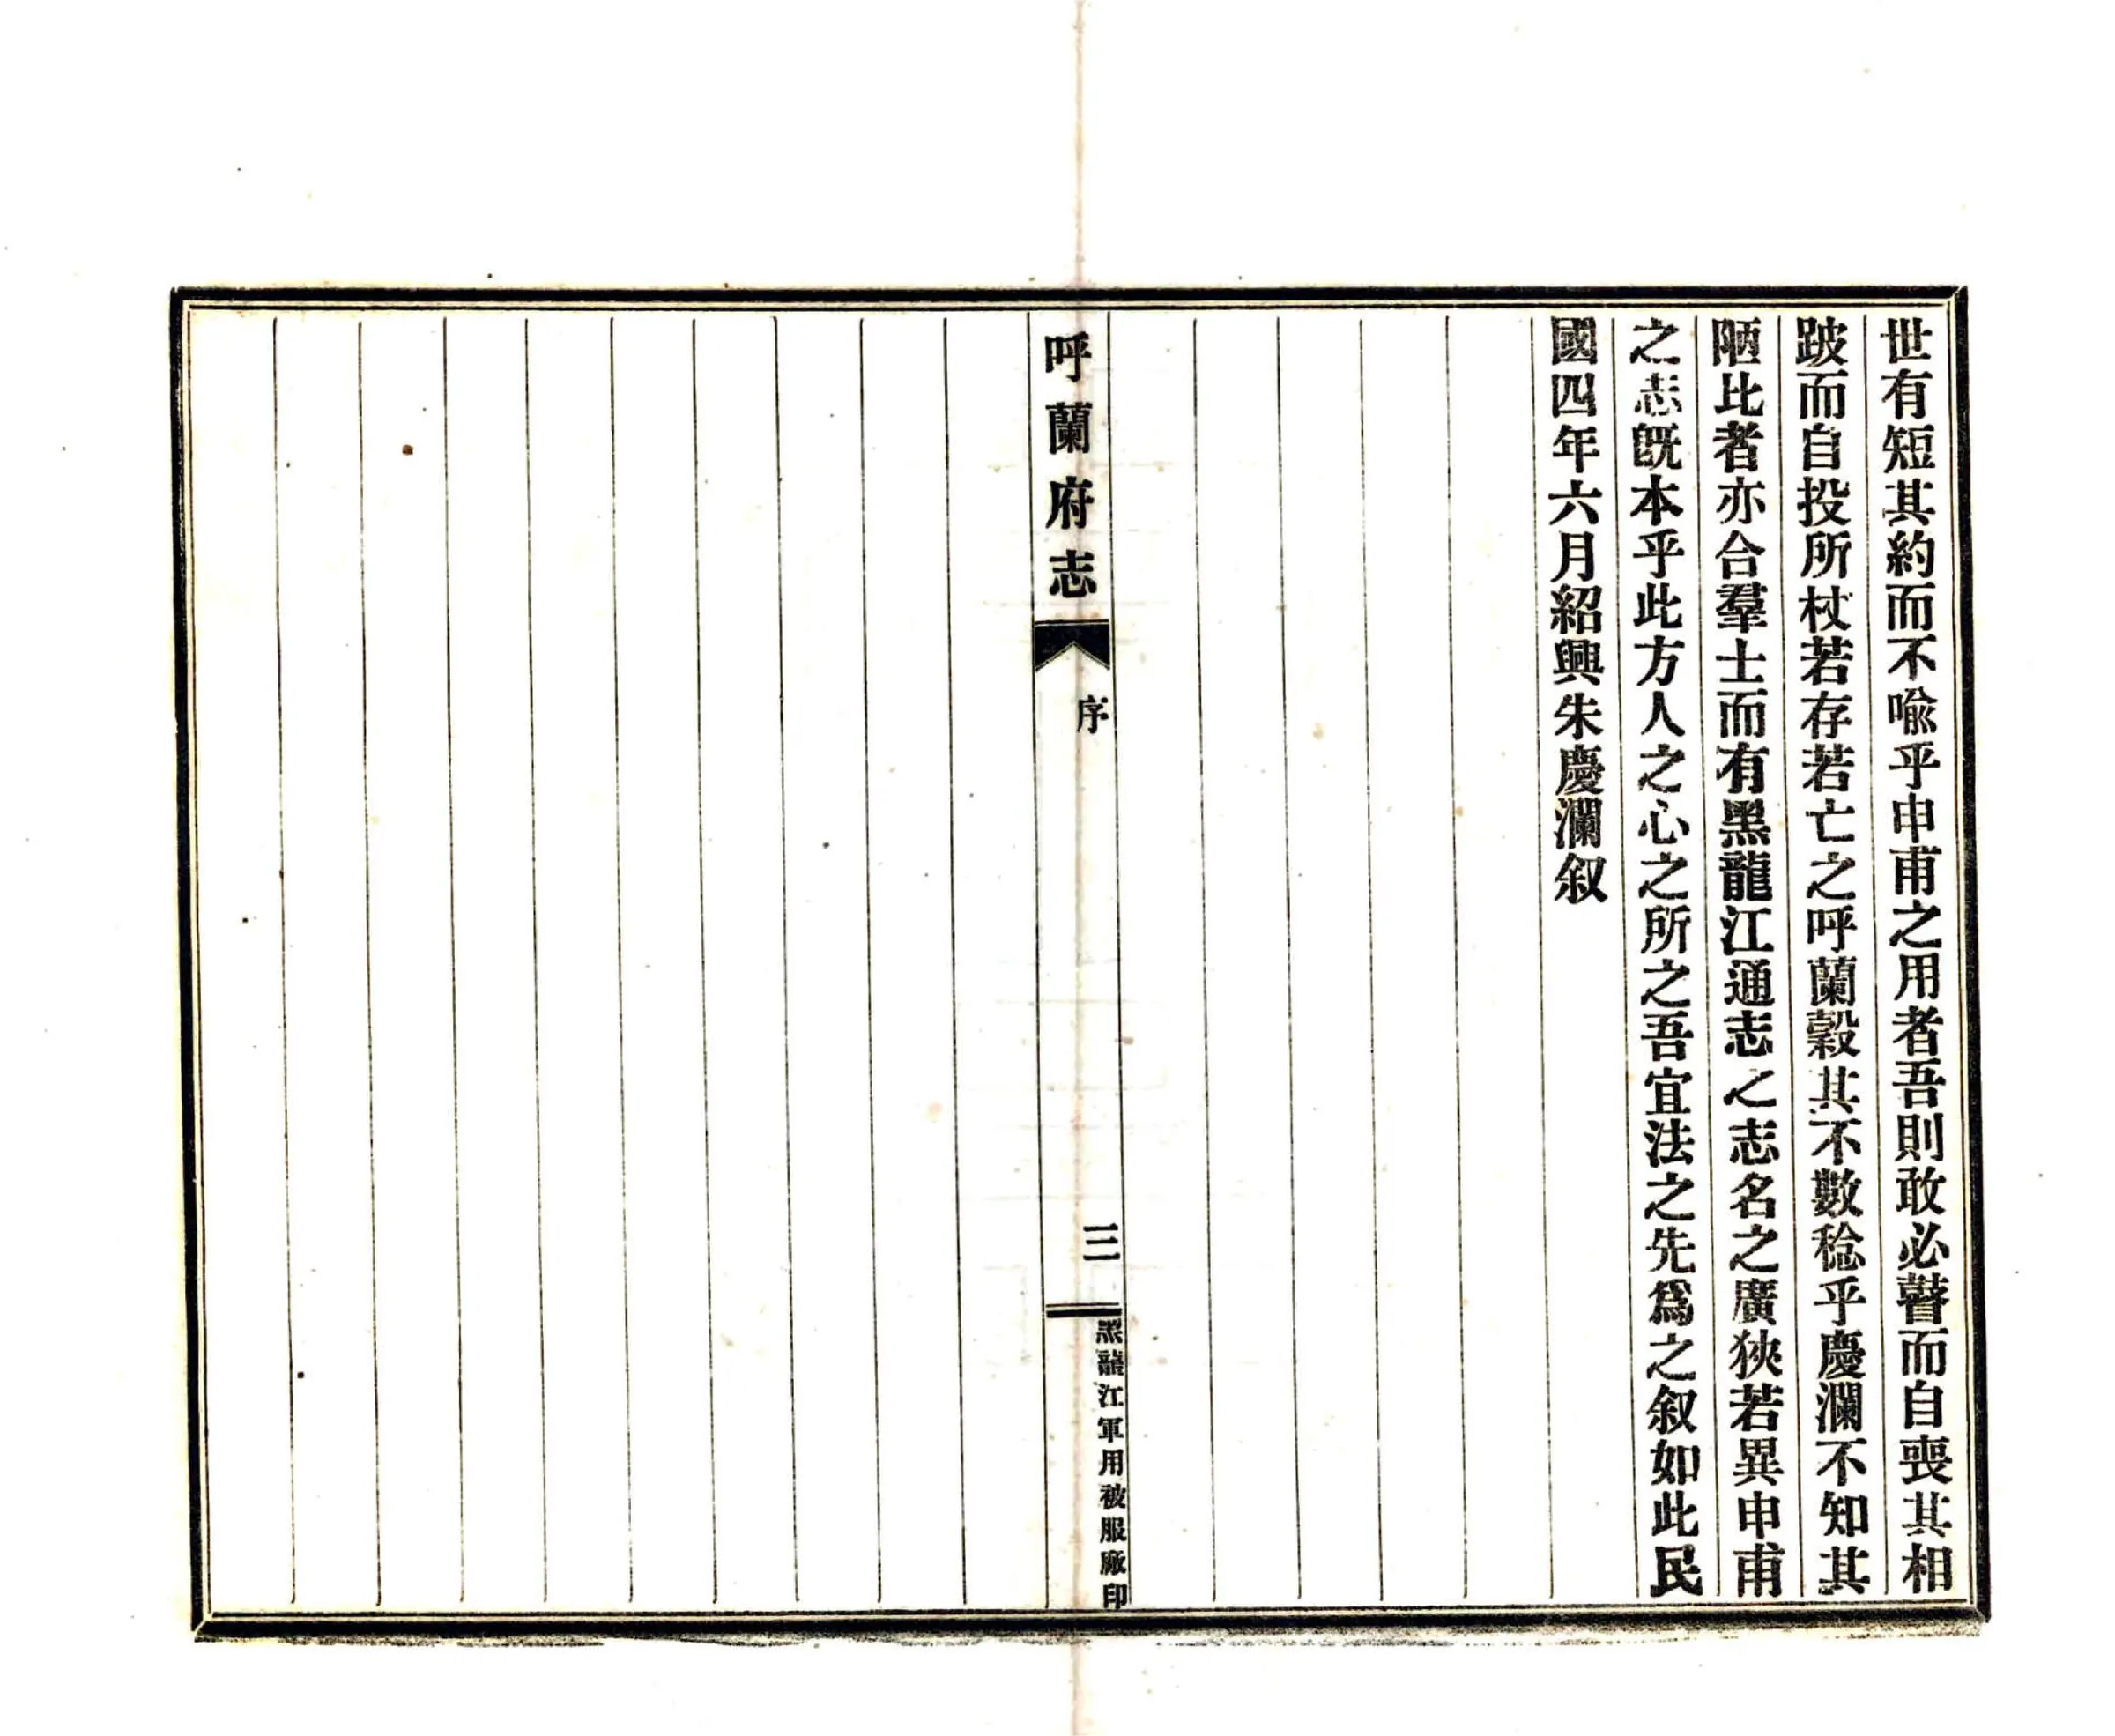 世有短其約而不喩乎申甫之用者吾則敢必瞽而自喪其相
跛而自投所杖若存若亡之呼蘭穀其不數稔乎慶瀾不知其
陋比者亦合羣士而有黑龍江通志之志名之廣狹若異申甫
之志旣本乎此方人之心之所之吾宜法之先爲之叙如此民
國四年六月紹興朱慶瀾叙
呼蘭府志
序
三
黑龍江軍用被服廠印